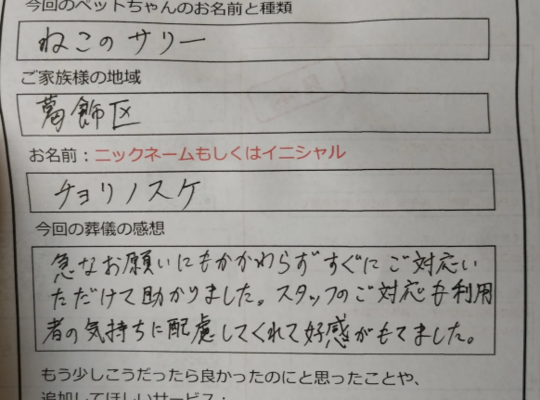 今回のペットちゃんのお名前と種類
ねこのサリー
ご家族様の地域
葛飾区
お名前：ニックネームもしくはイニシャル
チョリノスケ
今回の葬儀の感想
急なお願いにもかかわらずすぐにご対応い
ただけて助かりました。スタッフのご対応も利用
者の気持ちに配慮してくれて好感がもてました。
もう少しこうだったら良かったのにと思ったことや、
追加してほしいサービス：